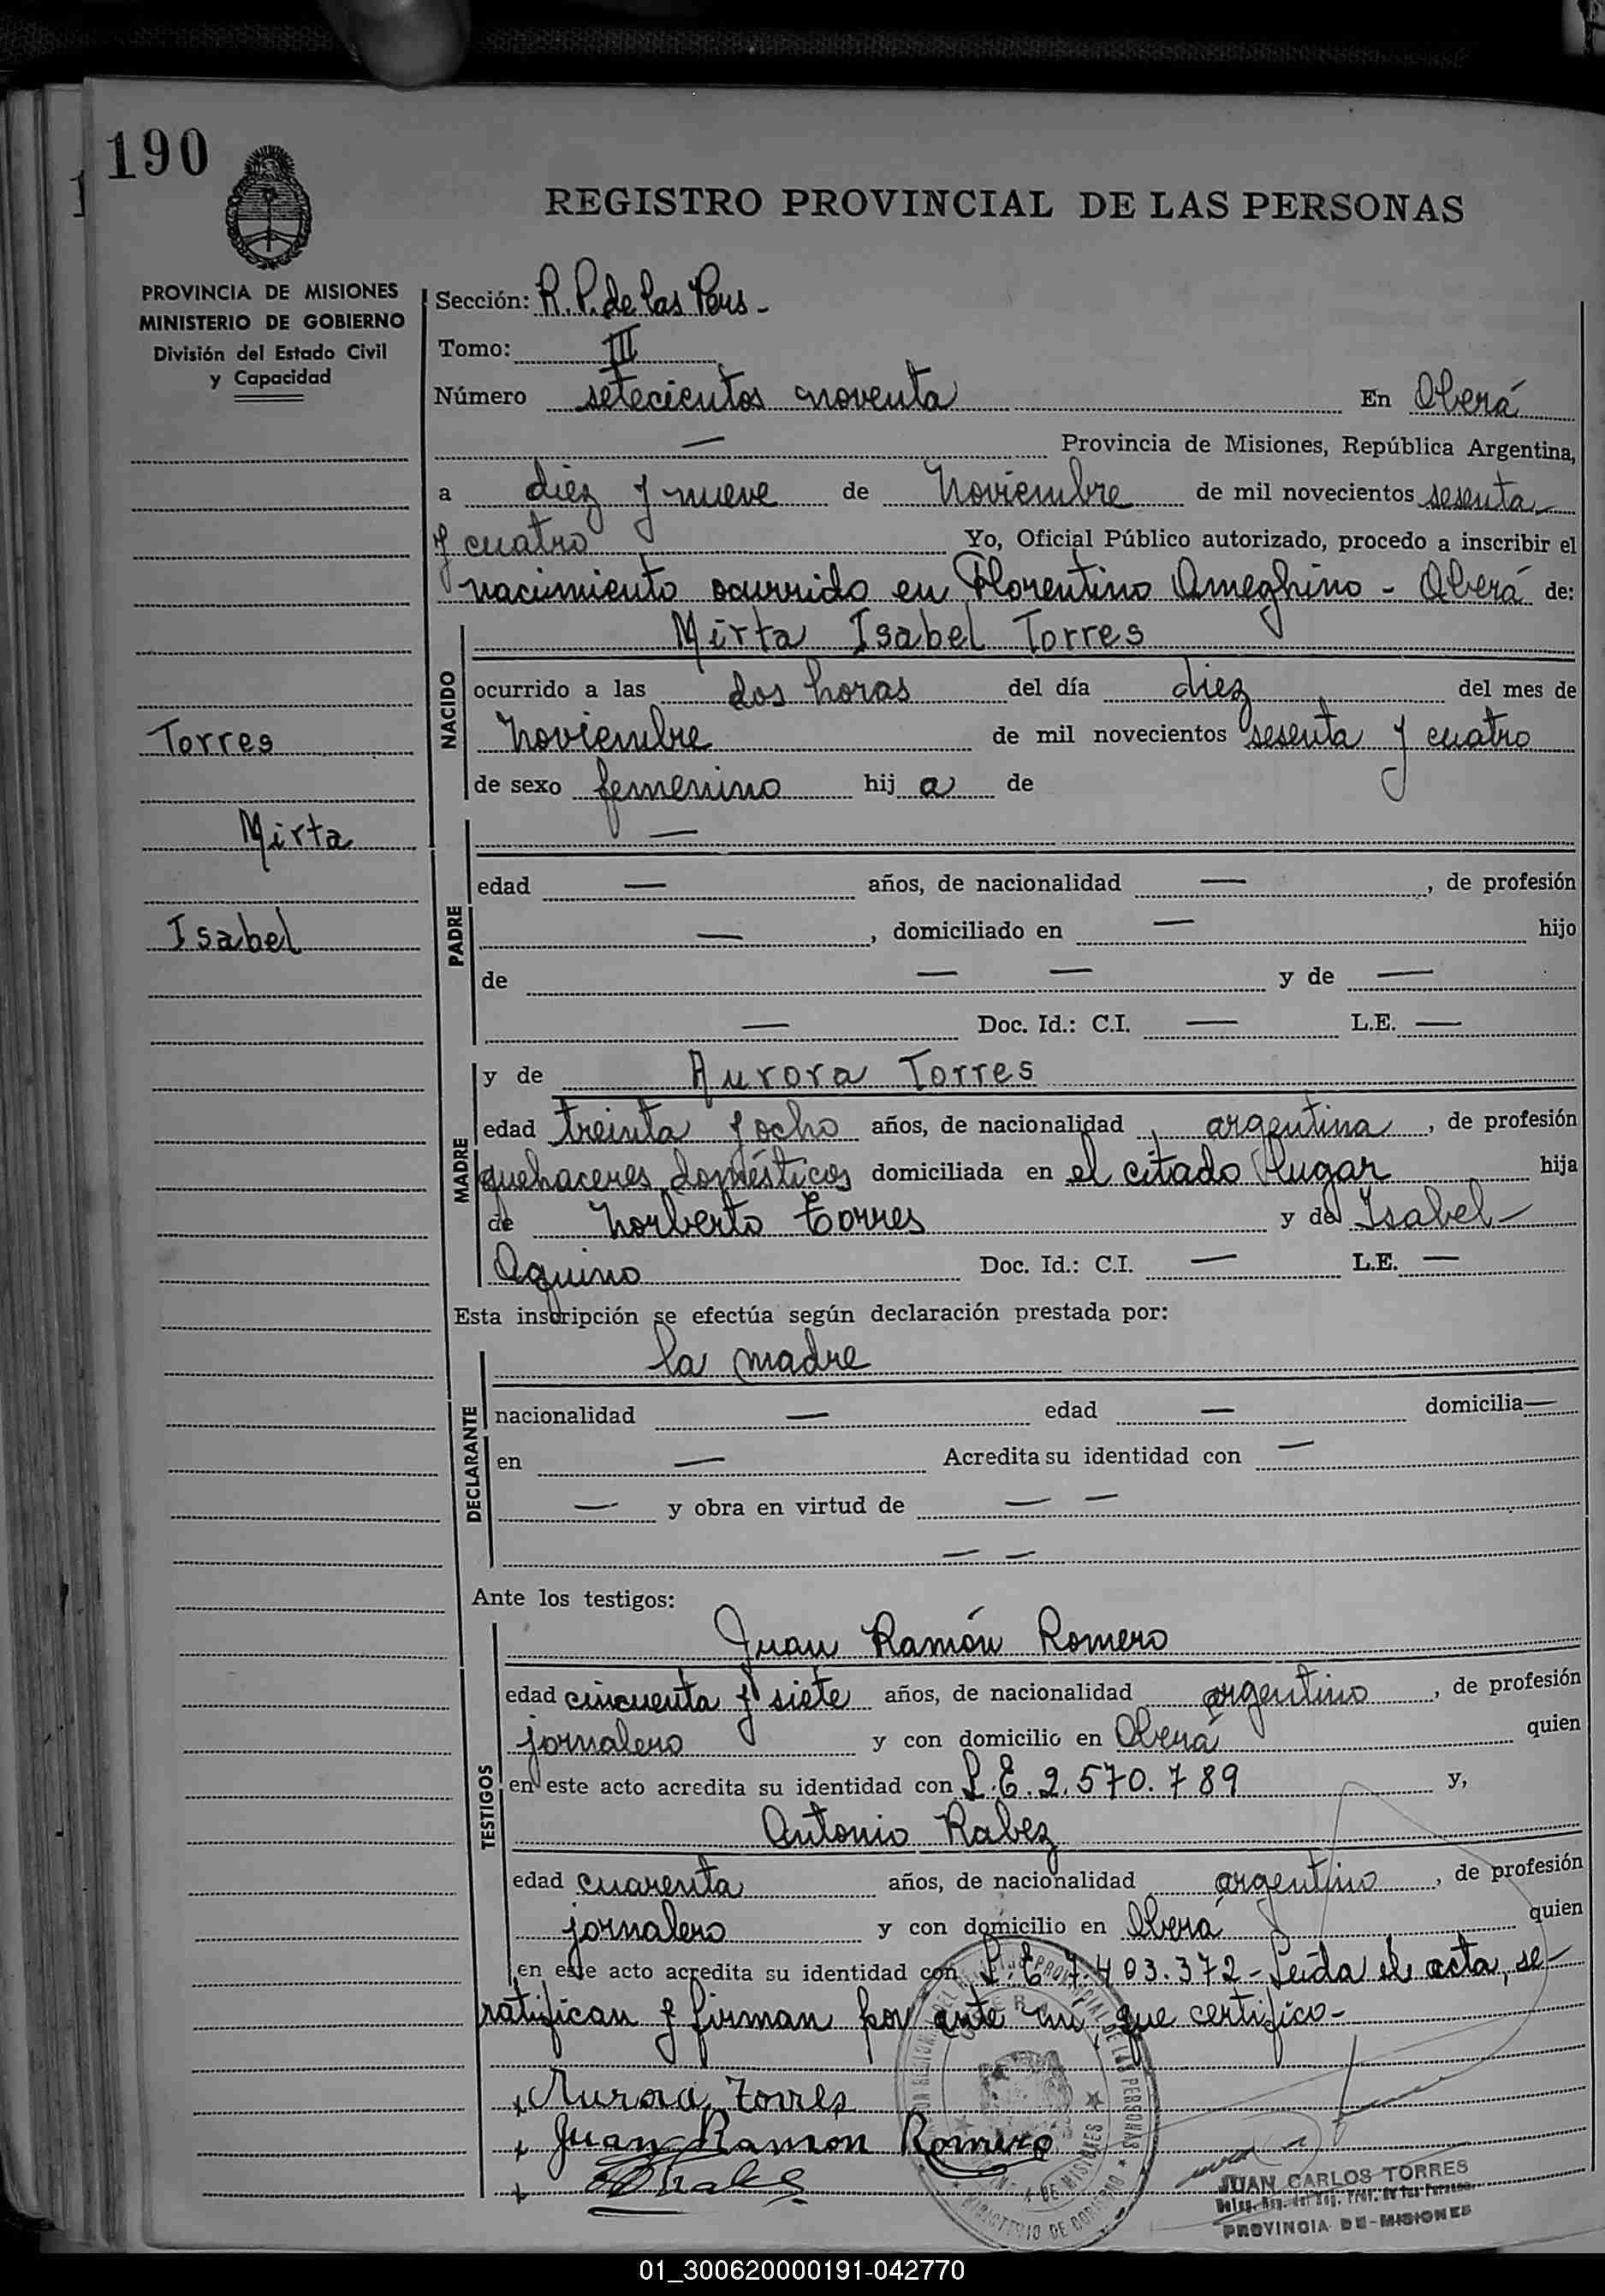 190
REGISTRO PROVINCIAL DE LAS PERSONAS
PROVINCIA DE MISIONES
MINISTERIO DE GOBIERNO
División del Estado Civil
y Capacidad
Sección: R. P. de las Pers -
Tomo: III
Número setecientos noventa En Oberá
— Provincia de Misiones, República Argentina,
a diez y nueve de Noviembre de mil novecientos sesenta
y cuatro Yo, Oficial Público autorizado, procedo a inscribir el
nacimiento ocurrido en Florentino Ameghino - Oberá de:
NACIDO
Mirta Isabel Torres
ocurrido a las dos horas del día diez del mes de
Noviembre de mil novecientos sesenta y cuatro
de sexo femenino hij a de
Torres
Mirta
Isabel
PADRE
—
edad — años, de nacionalidad — , de profesión
— , domiciliado en — hijo
de — — y de —
— Doc. Id.: C.I. — L.E. —
MADRE
y de Aurora Torres
edad treinta y ocho años, de nacionalidad argentina , de profesión
quehaceres domésticos domiciliada en el citado lugar hija
de Norberto Torres y de Isabel —
Aquino Doc. Id.: C.I. — L.E. —
Esta inscripción se efectúa según declaración prestada por:
DECLARANTE
la madre
nacionalidad — edad — domicilia —
en — Acredita su identidad con —
— y obra en virtud de — —
— —
Ante los testigos:
TESTIGOS
Juan Ramón Romero
edad cincuenta y siete años, de nacionalidad argentino , de profesión
jornalero y con domicilio en Oberá quien
en este acto acredita su identidad con L. E. 2.570.789 y,
Antonio Rabez
edad cuarenta años, de nacionalidad argentino , de profesión
jornalero y con domicilio en Oberá quien
en este acto acredita su identidad con L. E. 7.403.372 - Leida el acta, se -
ratifican y firman por ante mi, que certifico -
x Aurora Torres
x Juan Ramon Romero
x
JUAN CARLOS TORRES
PROVINCIA DE MISIONES
01_300620000191-042770